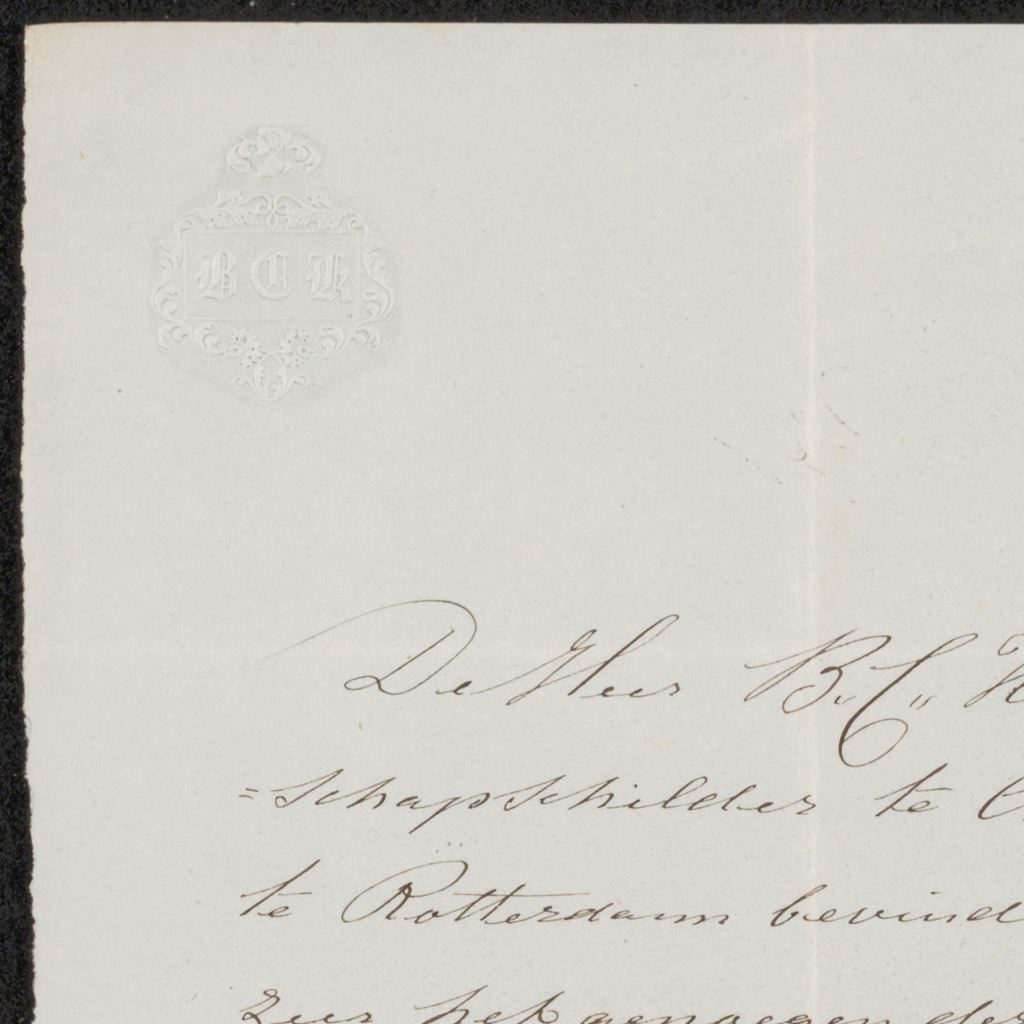 BCK
De Heer B. C.
=schapschilder te
te Rotterdam bevind
zeer het genoegen der